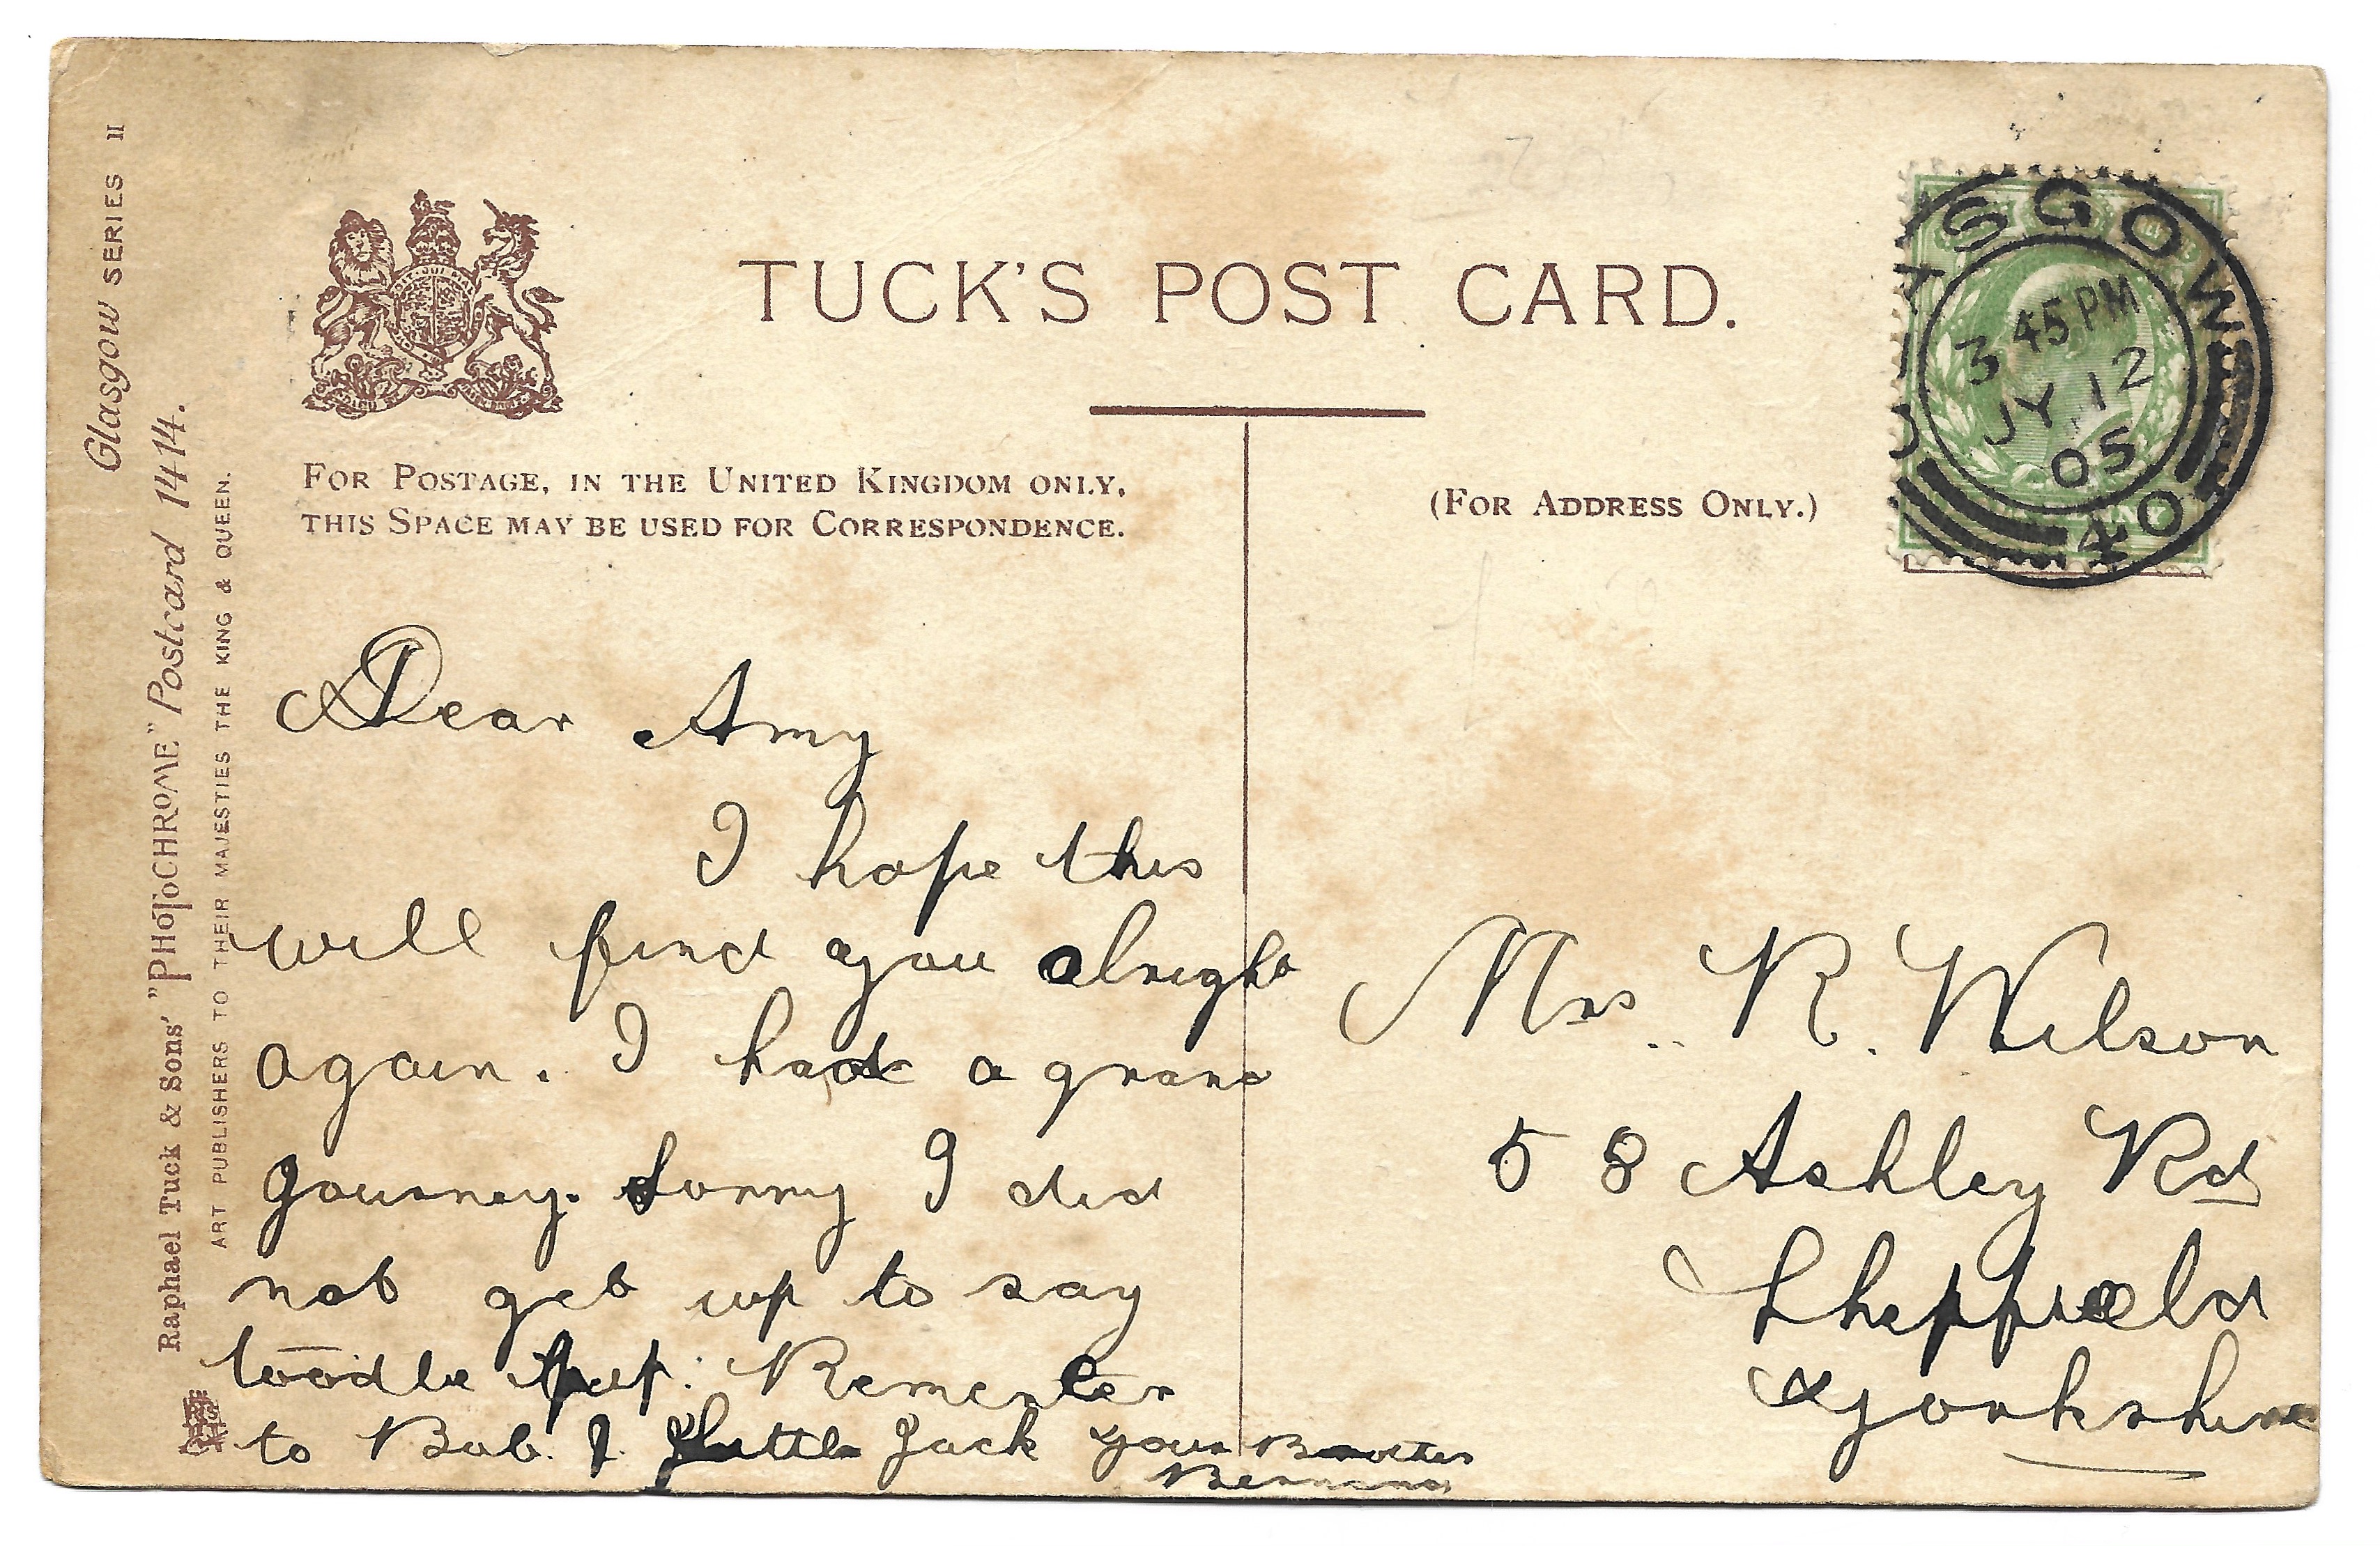 Glasgow SERIES II
Raphael Tuck & Sons' "PHOTOCHROME" Postcard 1414.
ART PUBLISHERS TO THEIR MAJESTIES THE KING & QUEEN.
TUCK'S POST CARD.
FOR POSTAGE, IN THE UNITED KINGDOM ONLY,
THIS SPACE MAY BE USED FOR CORRESPONDENCE.
(FOR ADDRESS ONLY.)
ASGOW
3 45 PM
JY 12
05
40
Dear Amy
I hope this
will find you alright
again. I had a grand
Journey. Sorry I did
not get up to say
toodle pip. Remember
to Bob. & little Jack your Brother
Bernard
Mrs. R. Wilson
58 Ashley Rd
Sheffield
Yorkshire